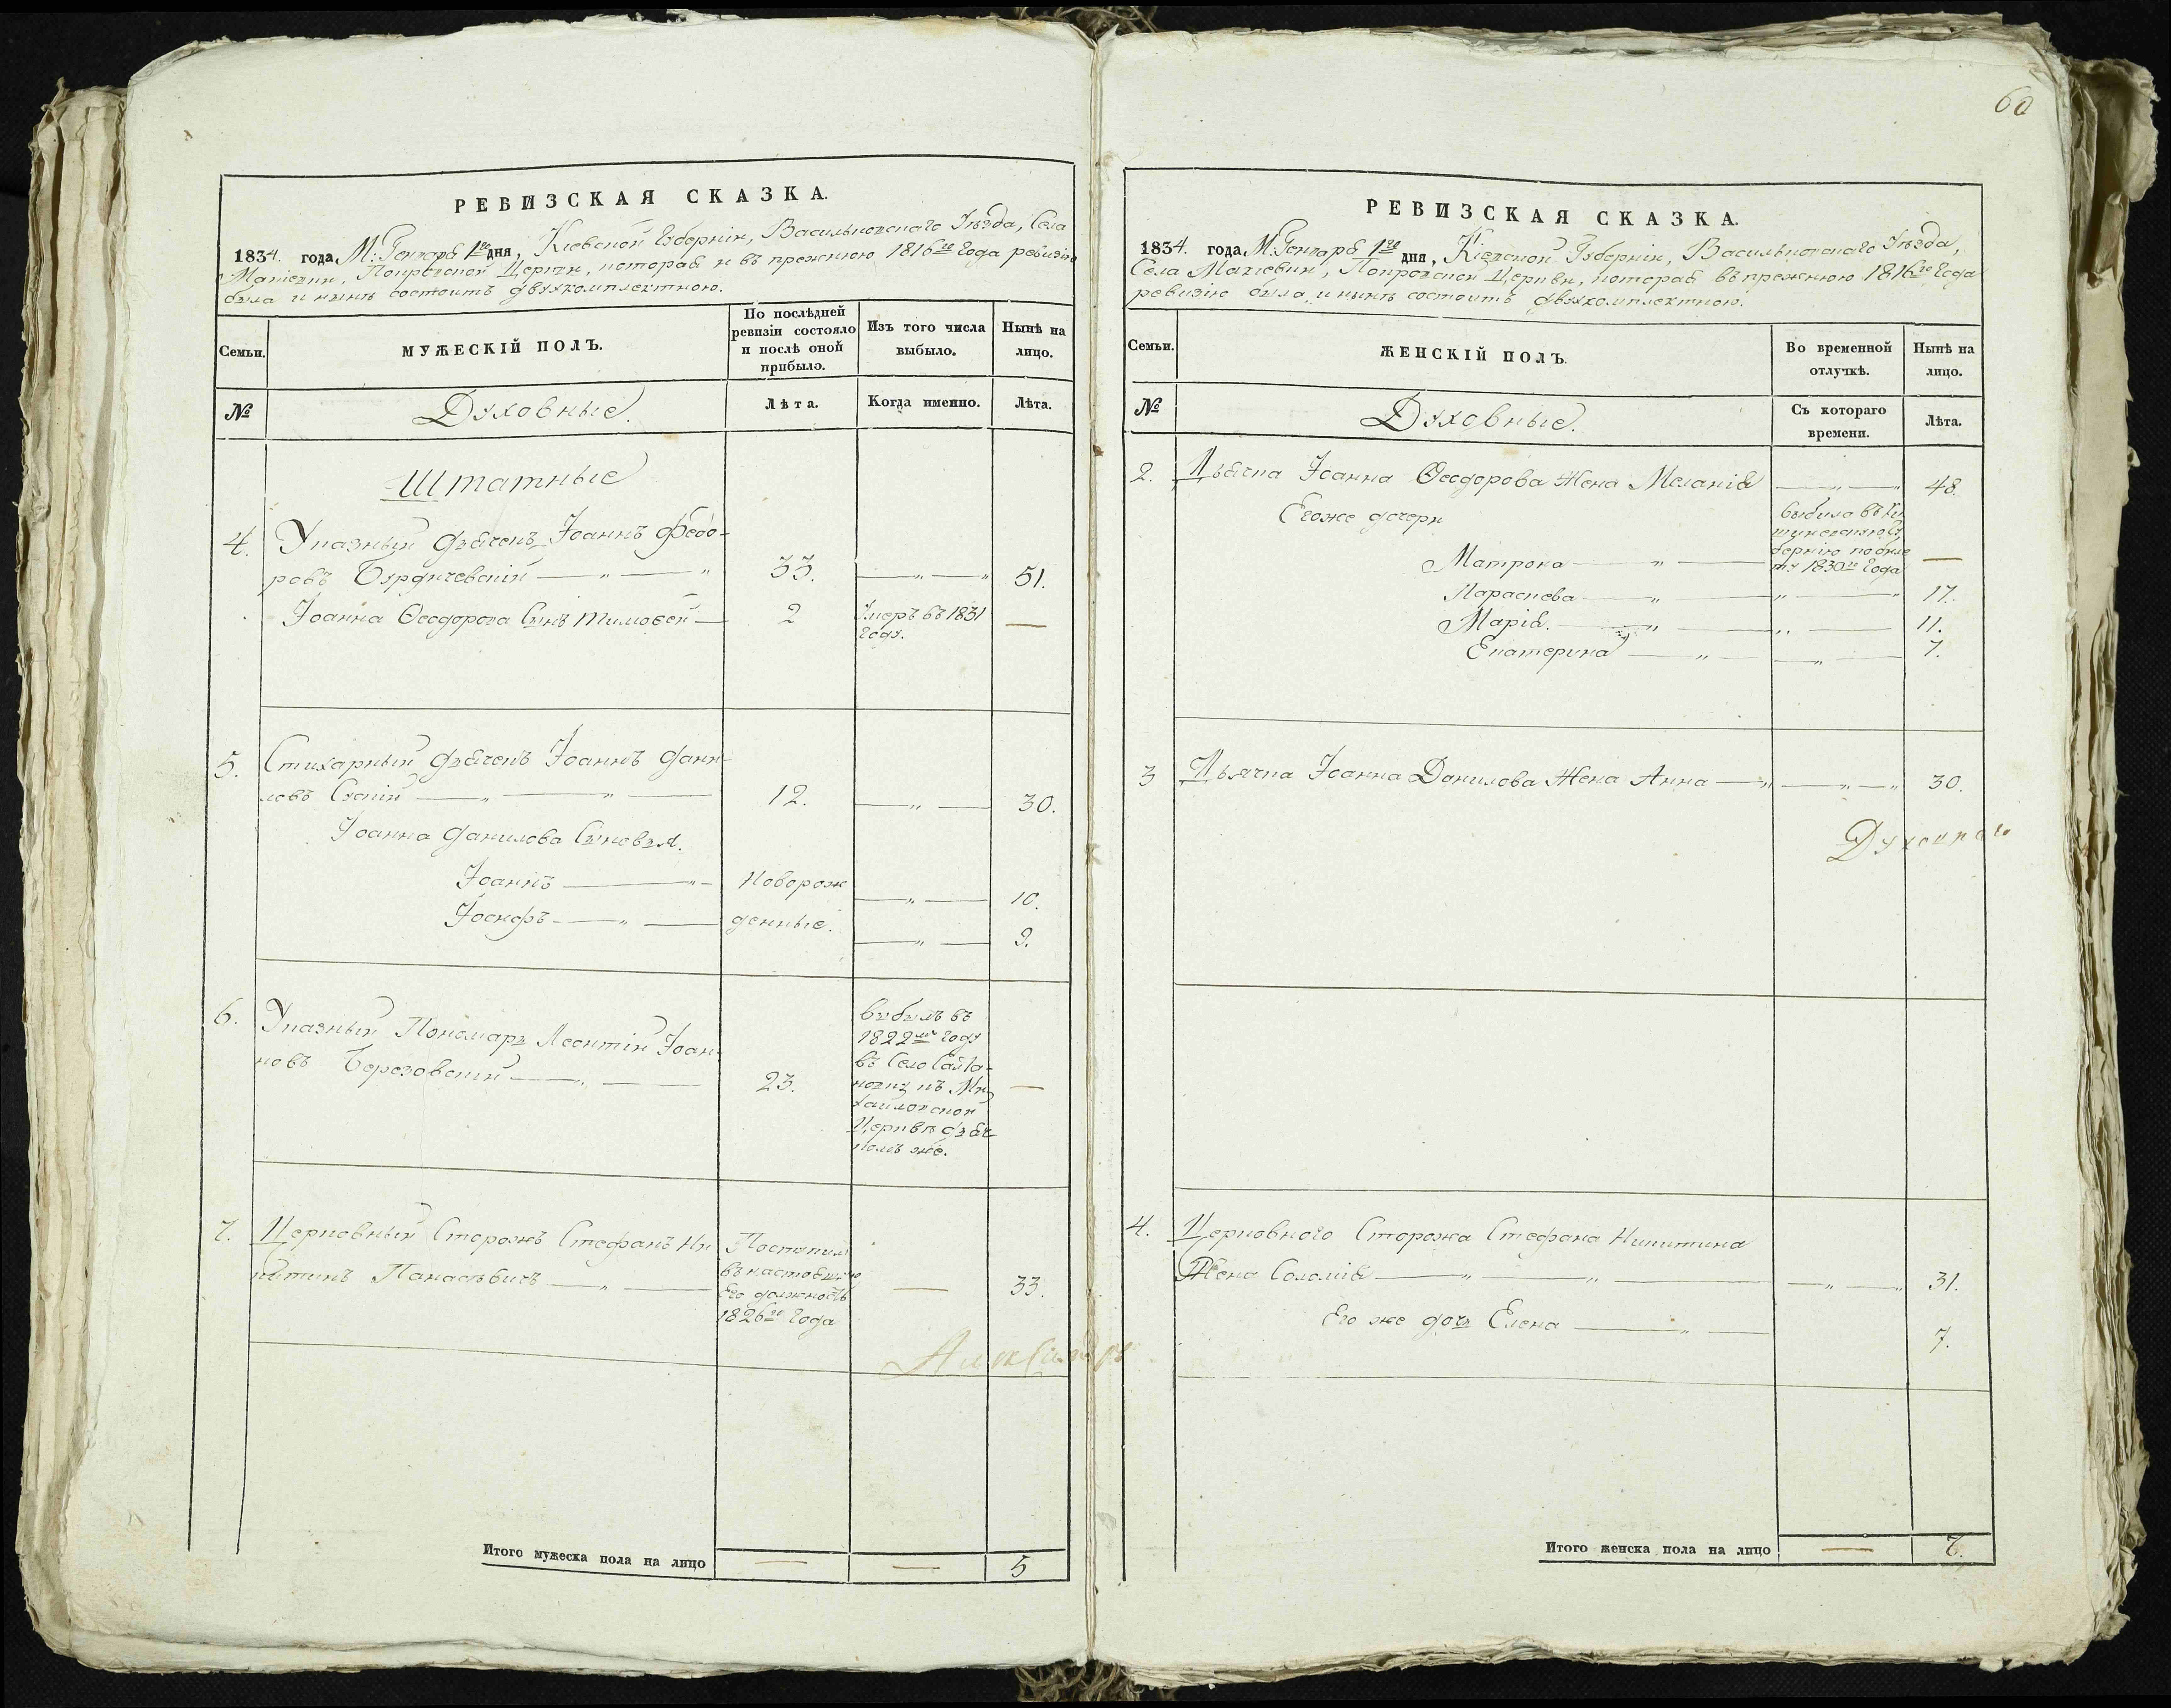 60
РЕВИЗСКАЯ СКАЗКА.
1834. года, М: Генваря 1го дня, Кіевской Губерніи, Васильковскаго Уѣзда, Села
Покровской Церкви, которая и въ прежнюю 1816го Года ревизію
была и нынѣ состоитъ двухкомплектною.
Семьи.
МУЖЕСКІЙ ПОЛЪ.
По послѣдней ревизіи состояло и послѣ оной прибыло.
Изъ того числа выбыло.
Нынѣ на лицо.
№
Духовные.
Лѣта.
Когда именно.
Лѣта.
Штатные
4. Указный дьячекъ Іоаннъ Федо-
ровъ Бердичевскій 33. 51.
Іоанна Ѳеодорова Сынъ Тимоѳей 2 Умеръ въ 1831 —
году.
5. Стихарный дьячекъ Іоаннъ Дани-
ловъ 12. 30.
Іоанна Данилова Сыновья.
Іоаннъ Новорож 10.
Іосифъ денные. 9.
6. Указный Пономарь Леонтій Іоан-
новъ Березовскій 23. —
выбылъ въ
1822мъ году
въ Село
къ Ми
хайловской
Церквѣ дьяч
комъ же.
7. Церковный Сторожъ Стефанъ Ни
китинъ Панасевичъ 33.
Поступил
въ настоящую
его должность
1826го Года
Александръ
Итого мужеска пола на лицо — — 5
РЕВИЗСКАЯ СКАЗКА.
1834. года, М: Генваря 1го дня, Кіевской Губерніи, Васильковскаго Уѣзда,
Села Покровской Церкви, которая въ прежнюю 1816го Года
ревизію была и нынѣ состоитъ двухкомплектною.
Семьи.
ЖЕНСКІЙ ПОЛЪ.
Во временной отлучкѣ.
Нынѣ на лицо.
№
Духовные.
Съ котораго времени.
Лѣта.
2. Дьячка Іоанна Ѳеодорова Жена Меланія 48.
Егоже дочери
выбыла въ Ки
шиневскую Гу
бернію по биле
ту 1830го Года
Матрона —
Параскева 17.
Марія. 11.
Екатерина 7.
3 Дьячка Іоанна Данилова Жена Анна 30.
Духовнаго
4. Церковного Сторожа Стефана Никитина
Жена Соломія 31.
Его же дочь Елена 7.
Итого женска пола на лицо — 7.